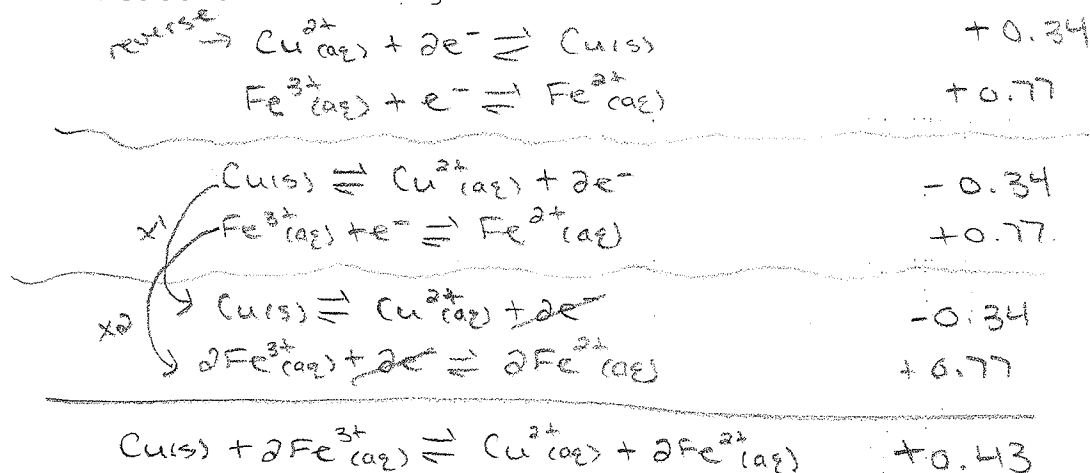 reverse → Cu²⁺(aq) + 2e⁻ ⇌ Cu(s) +0.34
Fe³⁺(aq) + e⁻ ⇌ Fe²⁺(aq) +0.77
Cu(s) ⇌ Cu²⁺(aq) + 2e⁻ -0.34
x1
Fe³⁺(aq) + e⁻ ⇌ Fe²⁺(aq) +0.77
x2
Cu(s) ⇌ Cu²⁺(aq) + 2e⁻ -0.34
2Fe³⁺(aq) + 2e⁻ ⇌ 2Fe²⁺(aq) +0.77
Cu(s) + 2Fe³⁺(aq) ⇌ Cu²⁺(aq) + 2Fe²⁺(aq) +0.43